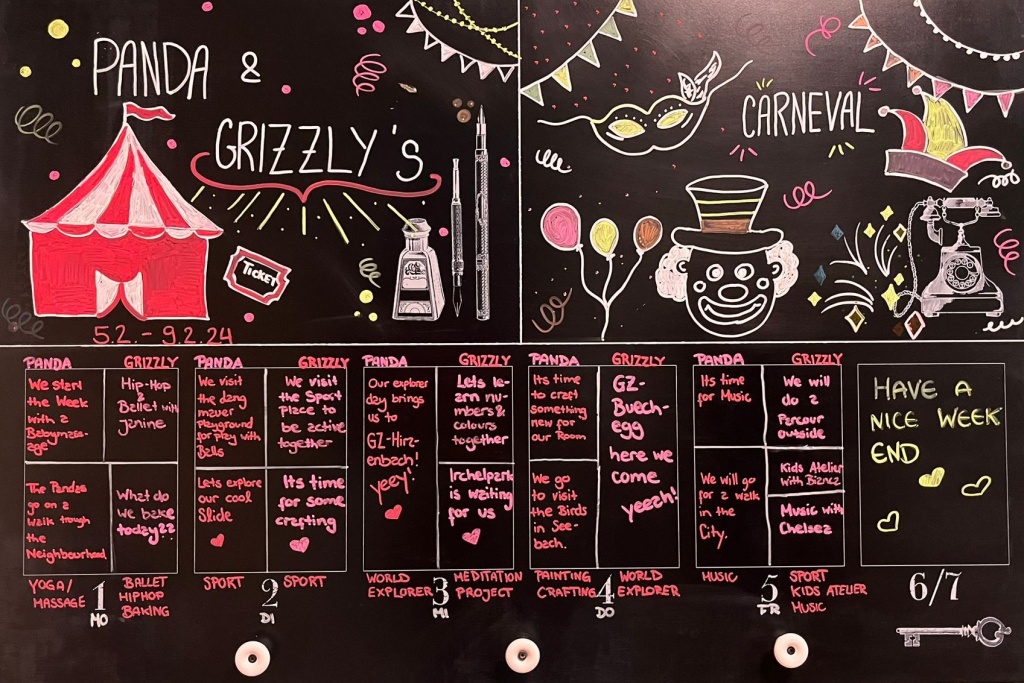 PANDA &
GRIZZLY's
TICKET
5.2. - 9.2.24
CARNEVAL
PANDA GRIZZLY
We start
the Week
with a
Babymas-
age
Hip-Hop
&
Ballet with
Janine
The Pandas
go on a
Walk trough
the
Neighbourhood
What do
we bake
today??
YOGA/
MASSAGE
1
MO
BALLET
HIPHOP
BAKING
PANDA GRIZZLY
We visit
the
Playground
for play with
Balls
We visit
the Sport
Place to
be active
together
Lets explore
our cool
Slide
Its time
for some
crafting
SPORT
2
DI
SPORT
PANDA GRIZZLY
Our explorer
day brings
us to
GZ-Hirz-
enbach!
yeey!
Lets le-
arn nu-
mbers &
colours
together
Irchelpark
is waiting
for us
WORLD
EXPLORER
3
MI
MEDITATION
PROJECT
PANDA GRIZZLY
Its time
to craft
something
new for
our Room
We go
to visit
the Birds
in See-
bach.
GZ-
Buech-
egg
here we
come
yeeah!
PAINTING
CRAFTING
4
DO
WORLD
EXPLORER
PANDA GRIZZLY
Its time
for Music
We will
do a
Parcour
outside
We will go
for a walk
in the
City.
Kids Atelier
with Bianca
Music with
Chelsea
MUSIC
5
FR
SPORT
KIDS ATELIER
MUSIC
HAVE A
NICE WEEK
END
6/7